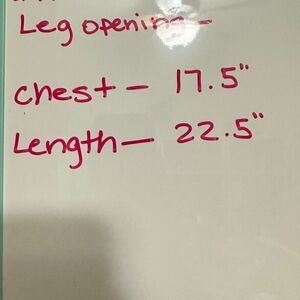 Leg opening -
Chest - 17.5"
Length - 22.5"